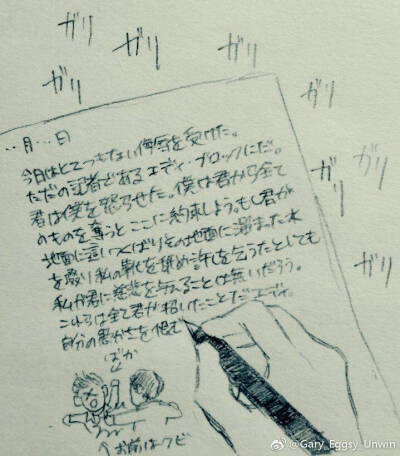 ガリ
ガリ
ガリ
ガリ
ガリ
ガリ
ガリ
ガリ
ガリ
‥月…日
今日はとてつもない侮辱を受けた。
ただの記者であるエディ・ブロックにだ。
君は僕を怒らせた。僕は君から全て
のものを奪うとここに約束しよう。もし君が
地面に這いつくばりその地面に溜まった水
を啜り私の靴を舐め許しを乞うたとしても
私が君に慈悲を与えることは無いだろう。
これらは全て君が招いたことだエディ。
自分の愚かさを恨む
ばか
↑お前はクビ
@Gary_Eggsy_Unwin